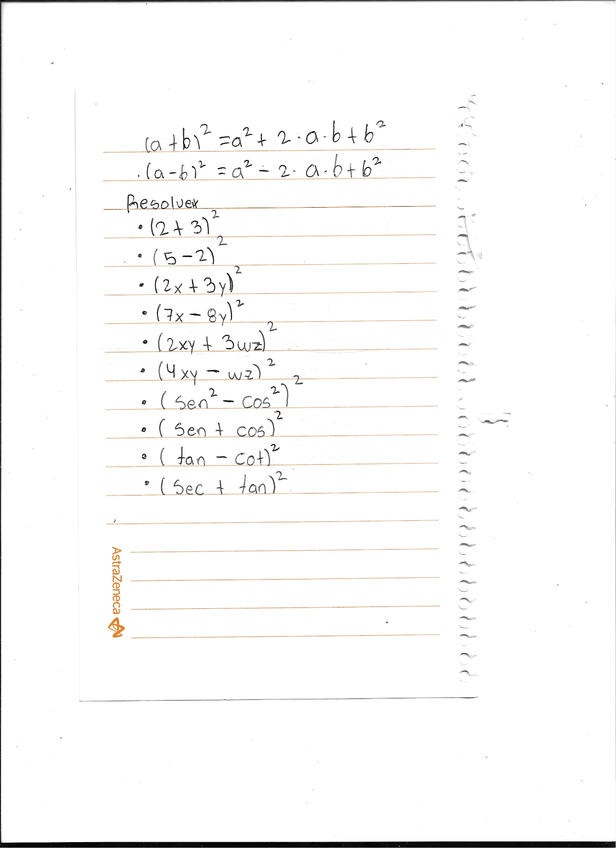 (a+b)² = a² + 2·a·b + b²
·(a-b)² = a² - 2·a·b + b²
Resolver
• (2 + 3)²
• (5 - 2)²
• (2x + 3y)²
• (7x - 8y)²
• (2xy + 3wz)²
• (4xy - wz)²
• (sen² - cos²)²
• (sen + cos)²
• (tan - cot)²
• (sec + tan)²
AstraZeneca